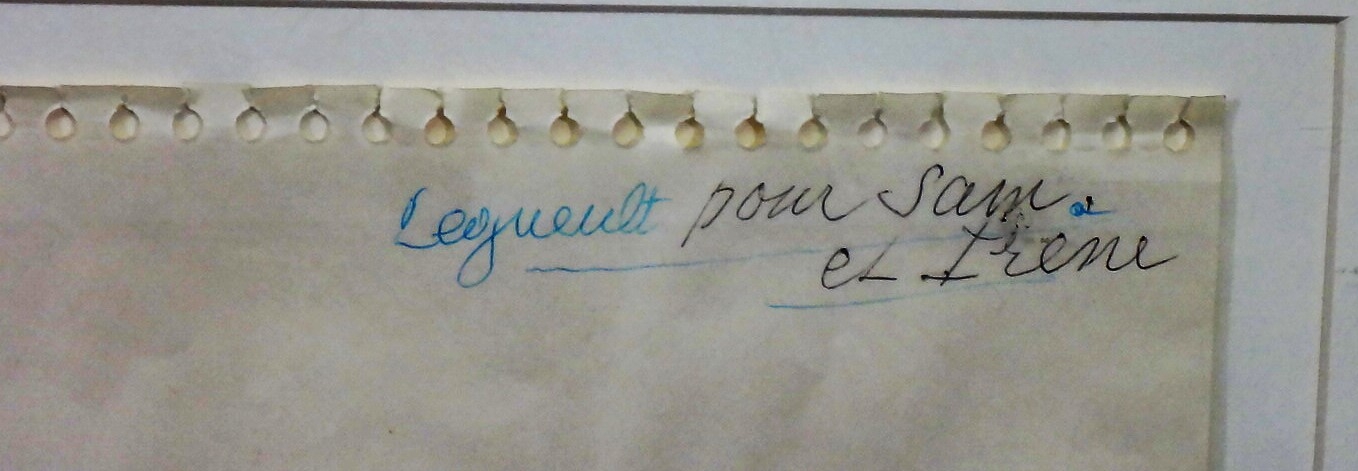 Legueult pour Sam.
et Irène